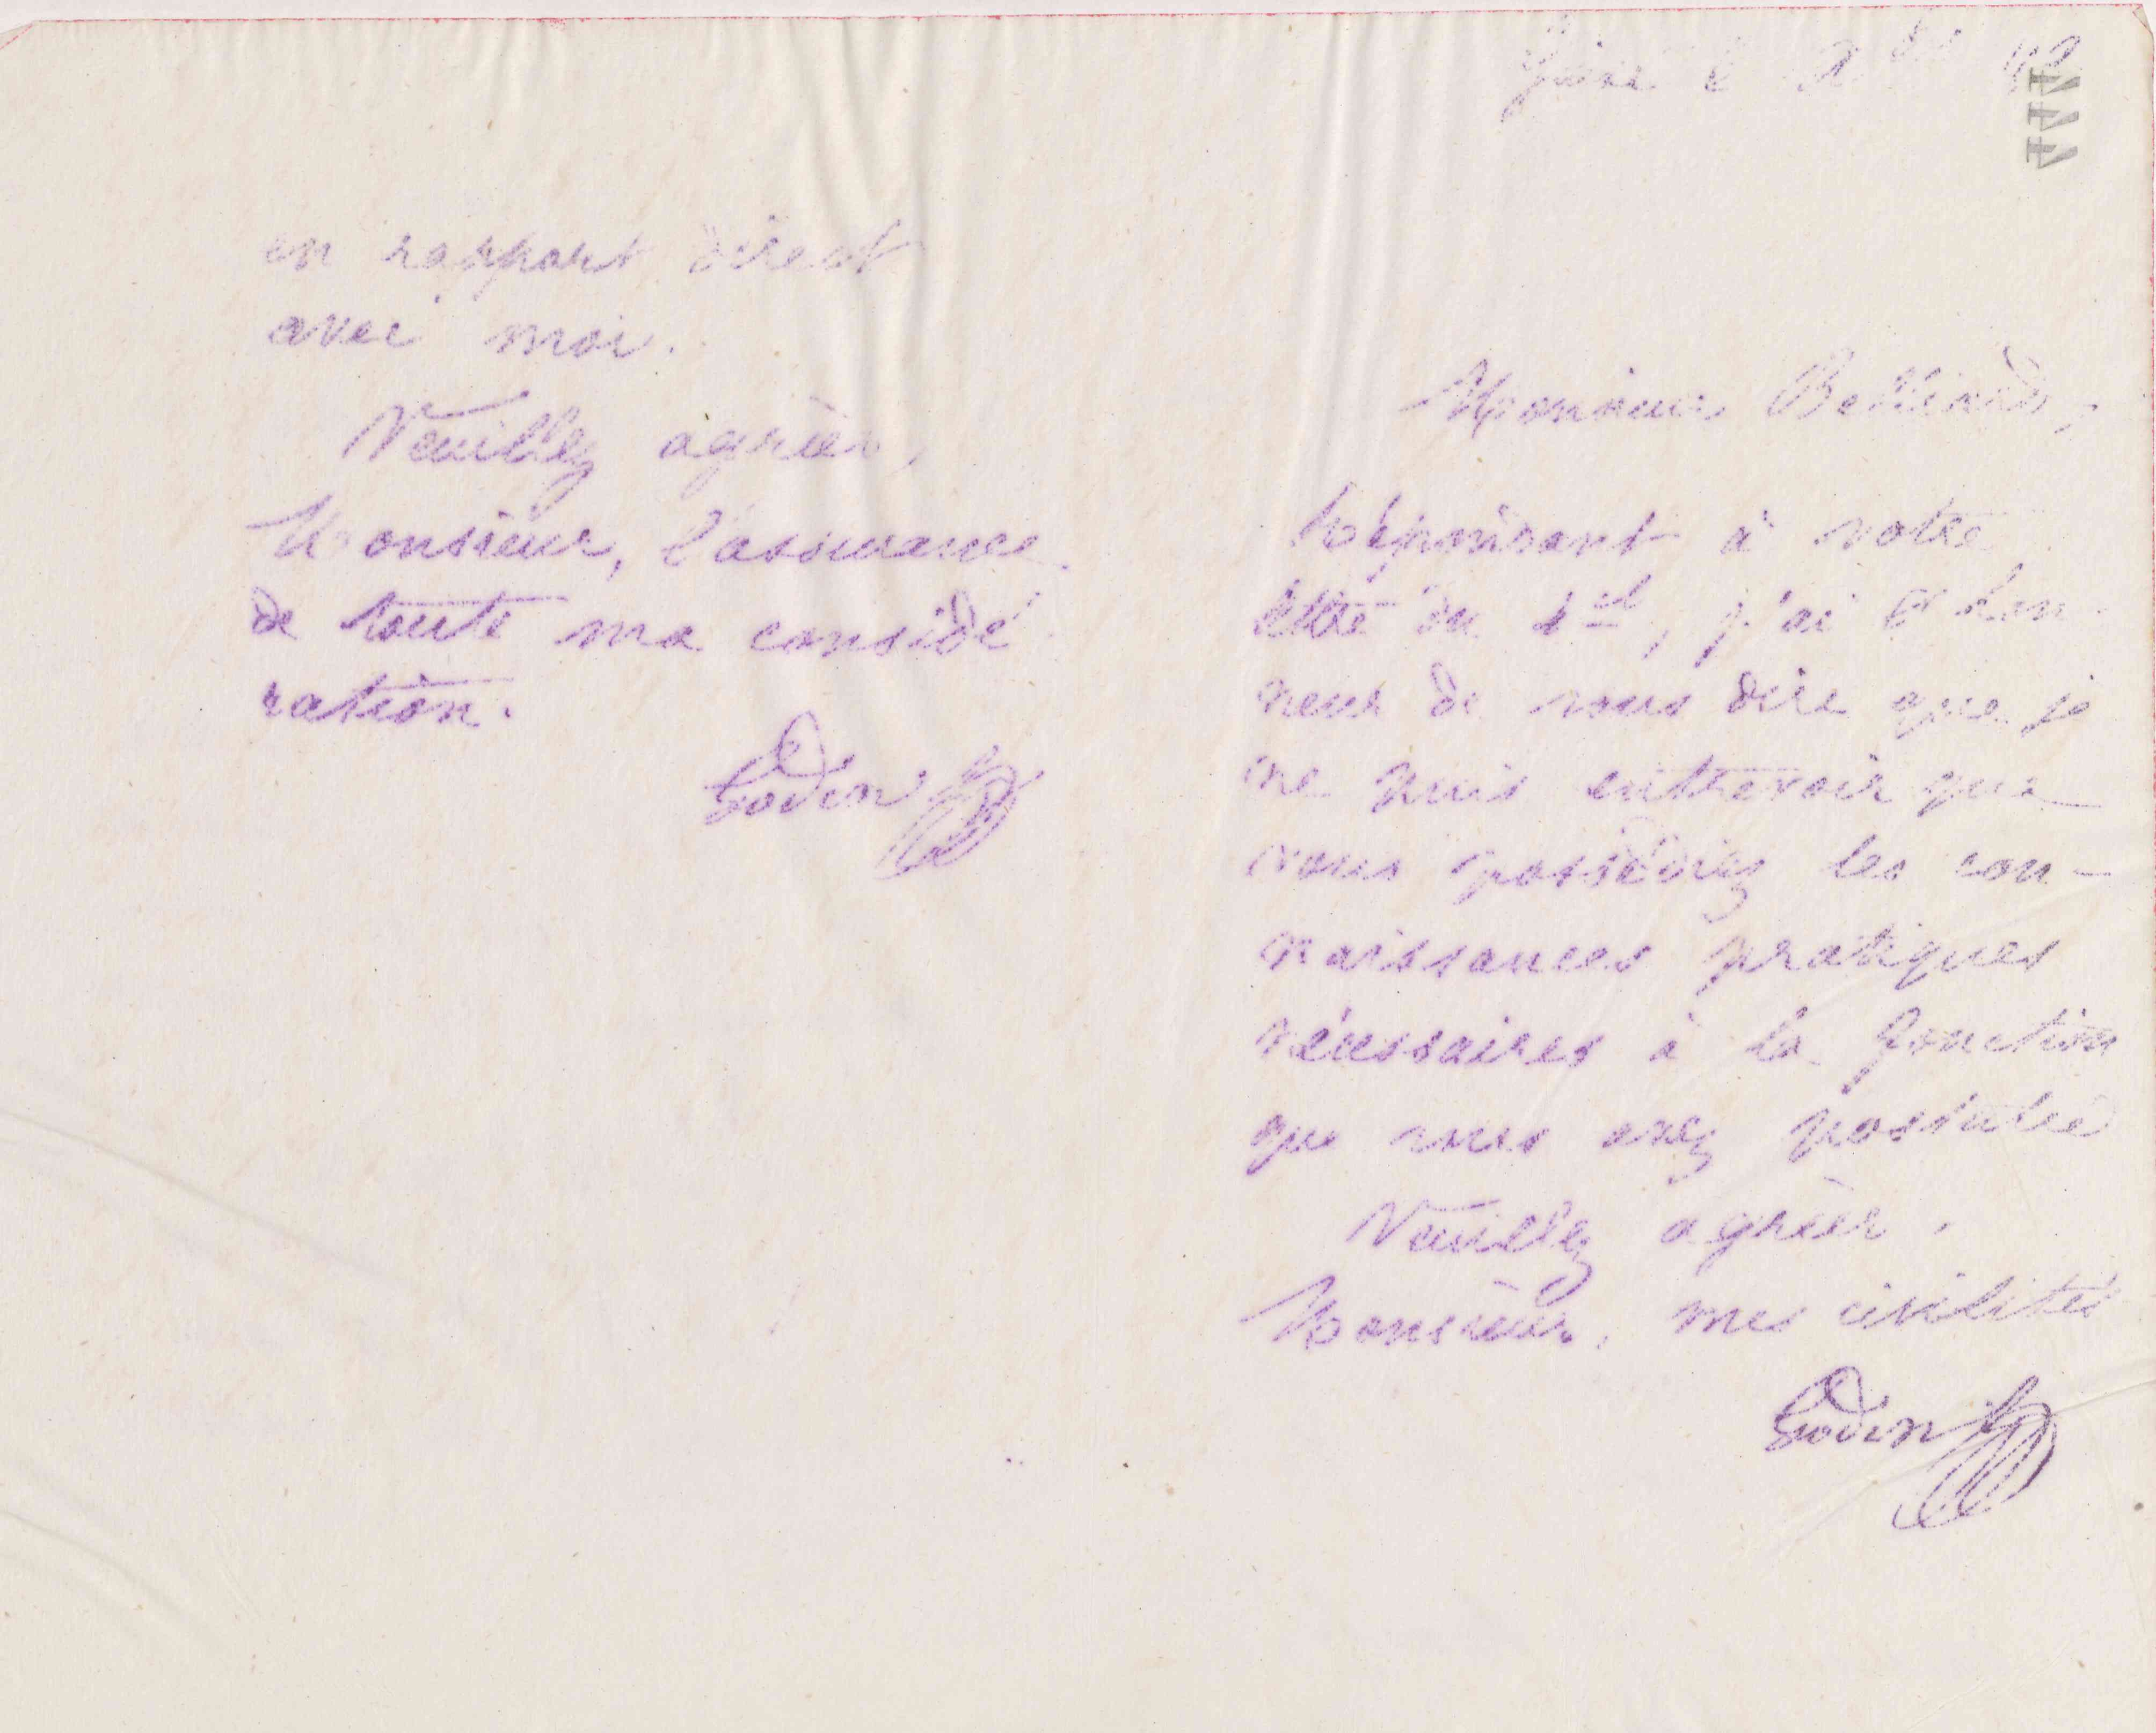 en rapport direct
avec moi.
Veuillez agréer,
Monsieur, l'assurance
de toute ma considé
ration.
Godin
Guise le
444
Monsieur
Répondant à votre
lettre du 1er, j'ai l'hon
neur de vous dire que je
ne puis entrevoir que
vous possédiez les con-
naissances pratiques
nécessaires à la fonction
que vous avez postulée
Veuillez agréer,
Monsieur, mes civilités
Godin